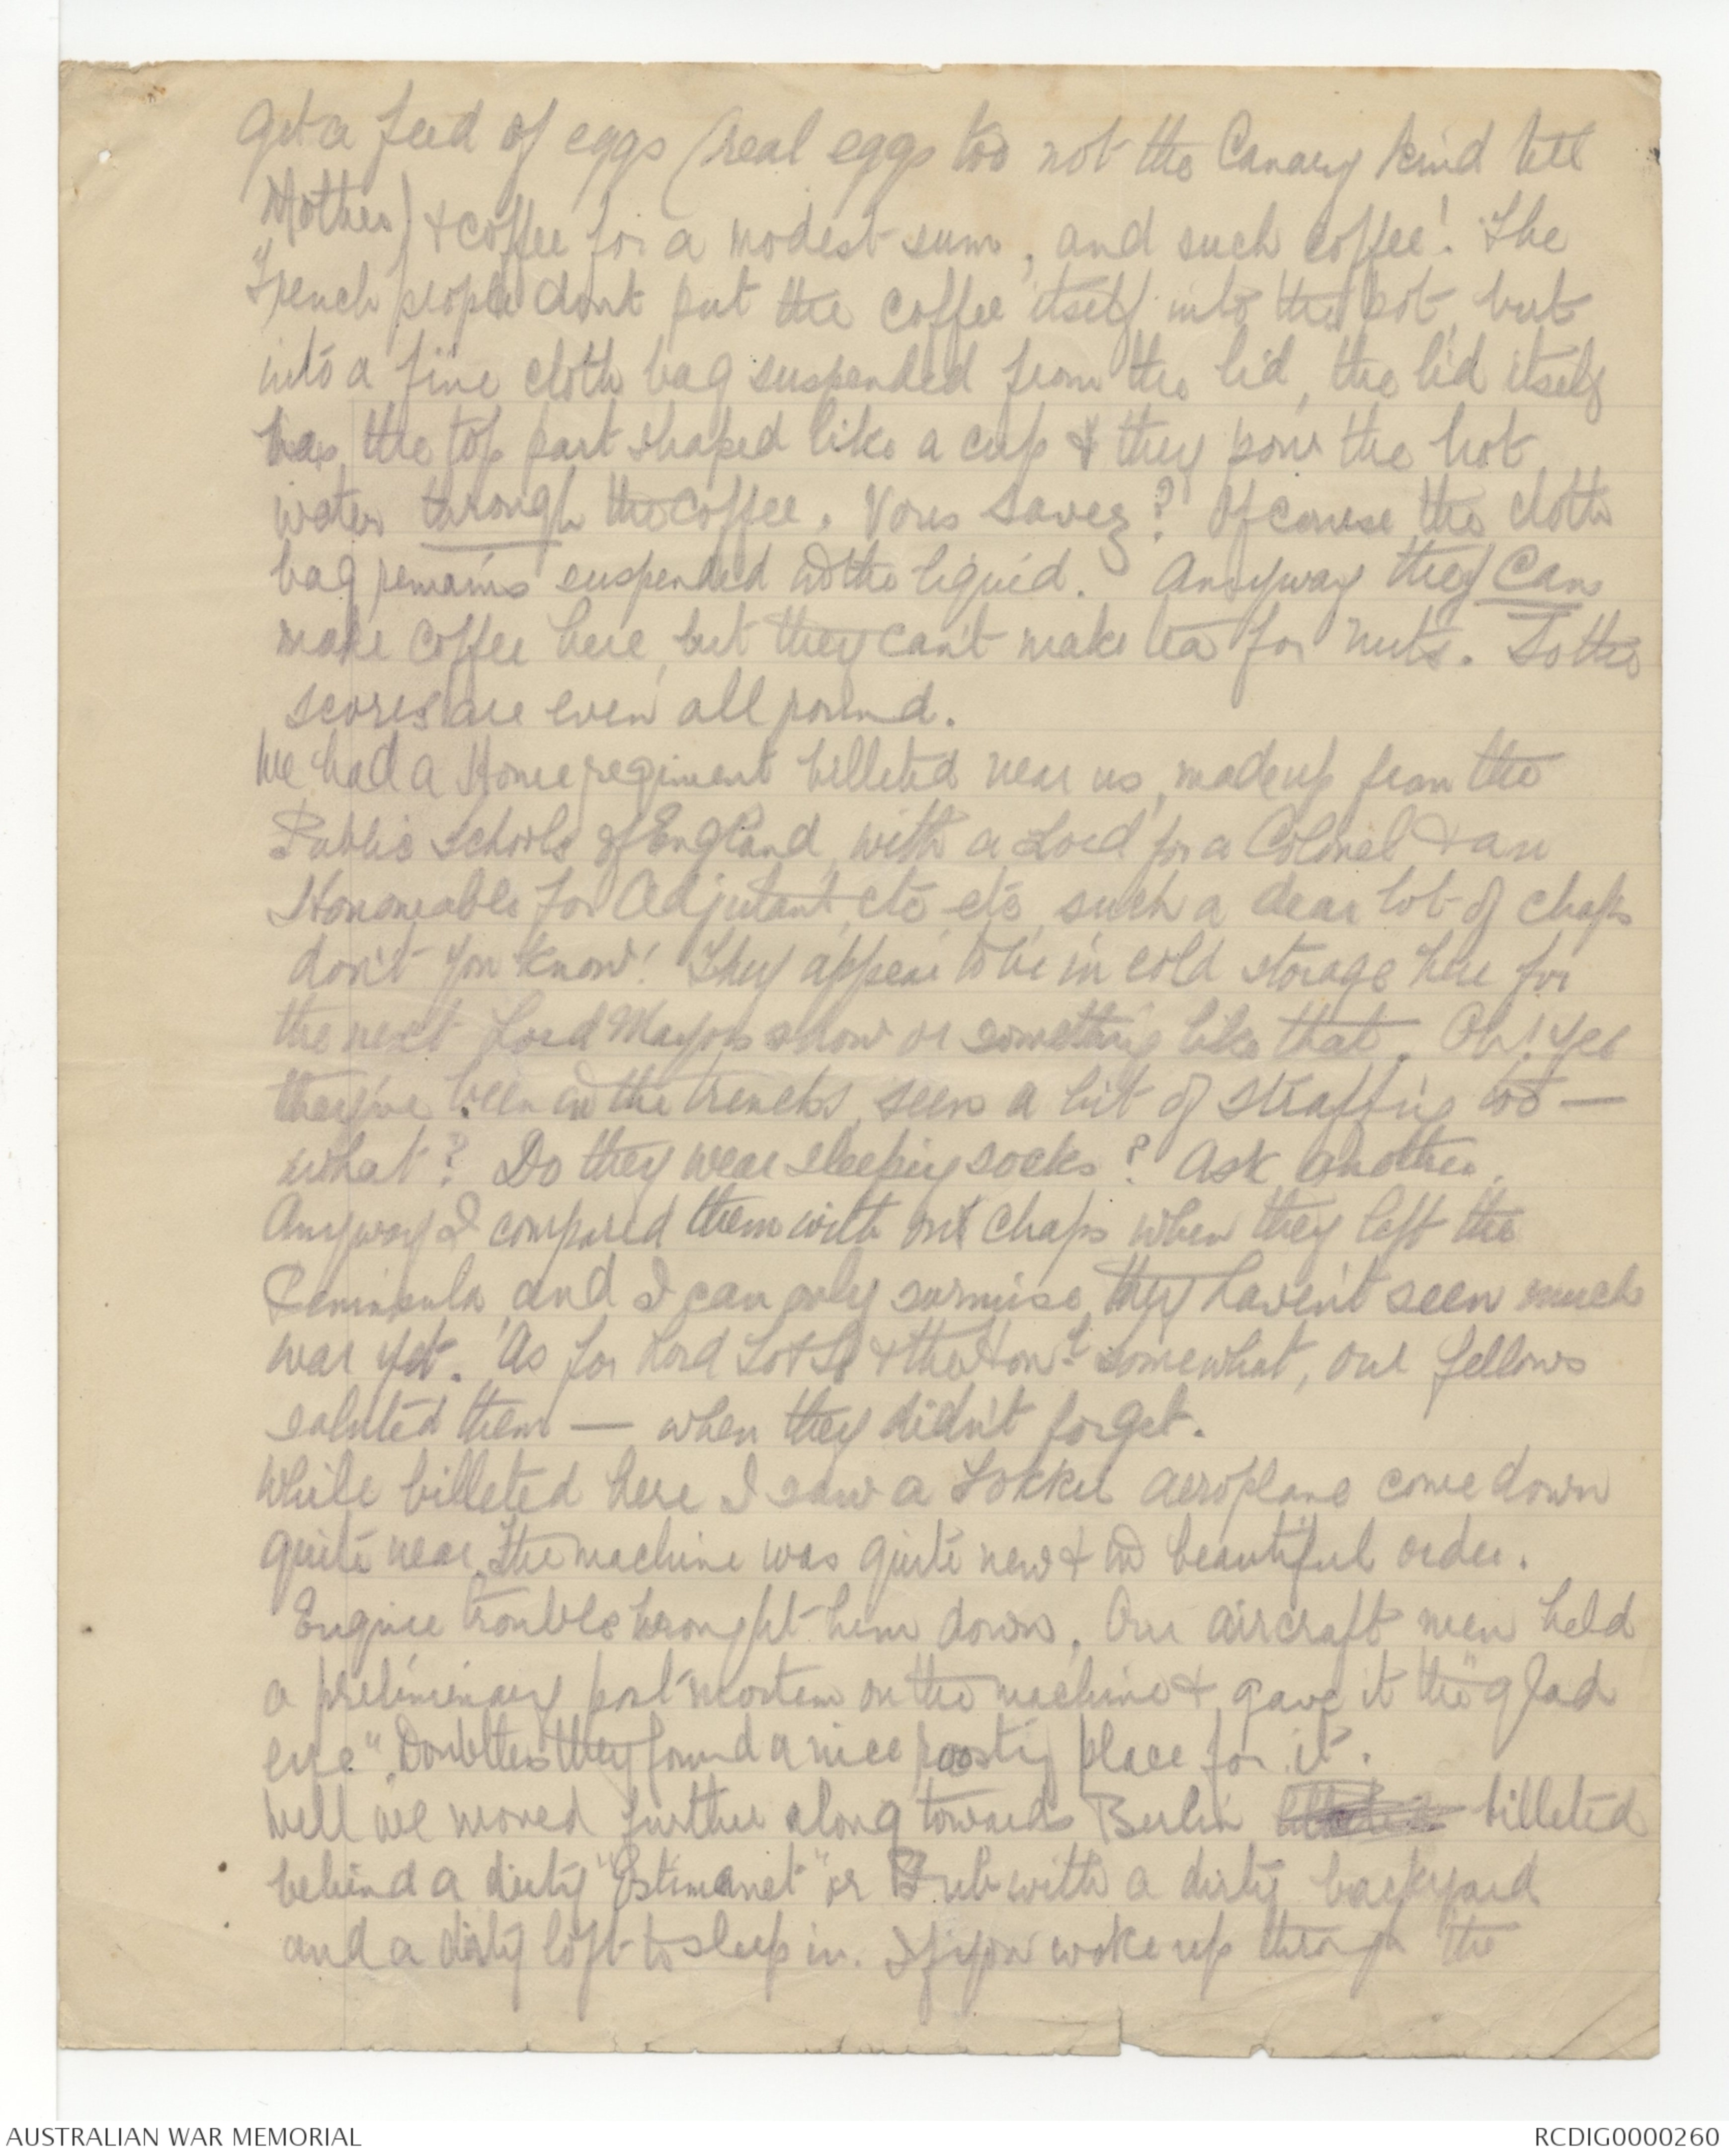 Get a feed of eggs (real eggs too not the Canary kind tell
Mother) & coffee for a modest sum, and such coffee! The
French people dont put the coffee itself into the pot, but
into a fine cloth bag suspended from the lid, the lid itself
has the top part shaped like a cup & they pour the hot
water through the coffee. Vous Savez? Of course the cloth
bag remains suspended in the liquid. Anyway they can
make coffee here but they can't make tea for nuts. So the
scores are even all round.
We had a Home regiment billeted near us, made up from the
Public Schools of England, with a Lord for a Colonel & an
Honourable for Adjutant, etc etc, such a dear lot of chaps
don't you know! They appear to be in cold storage here for
the next Lord Mayors show or something like that. Oh! yes
they've been in the trenches, seen a bit of straffing too —
what? Do they wear sleeping socks? Ask another.
Anyway I compared them with our chaps when they left the
Peninsula, and I can only surmise they haven't seen much
war yet. As for Lord So & So & the Honl somewhat, our fellows
saluted them — when they didn't forget.
While billeted here I saw a Fokker aeroplane come down
quite near. The machine was quite new & in beautiful order.
Engine trouble brought him down. Our aircraft men held
a preliminary post-mortem on the machine & gave it the "glad
eye". Doubtless they found a nice roosting place for it.
Well we moved further along towards Berlin billeted
behind a dirty "Estimanet" or Pub with a dirty backyard
and a dirty loft to sleep in. If you woke up through the
AUSTRALIAN WAR MEMORIAL
RCDIG0000260